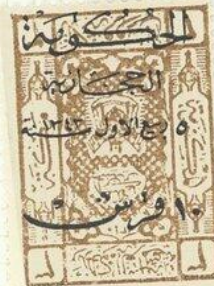 الحكومة
الحجازية
٥ ربيع الاول سنة ١٣٤٣
١٠ قرش